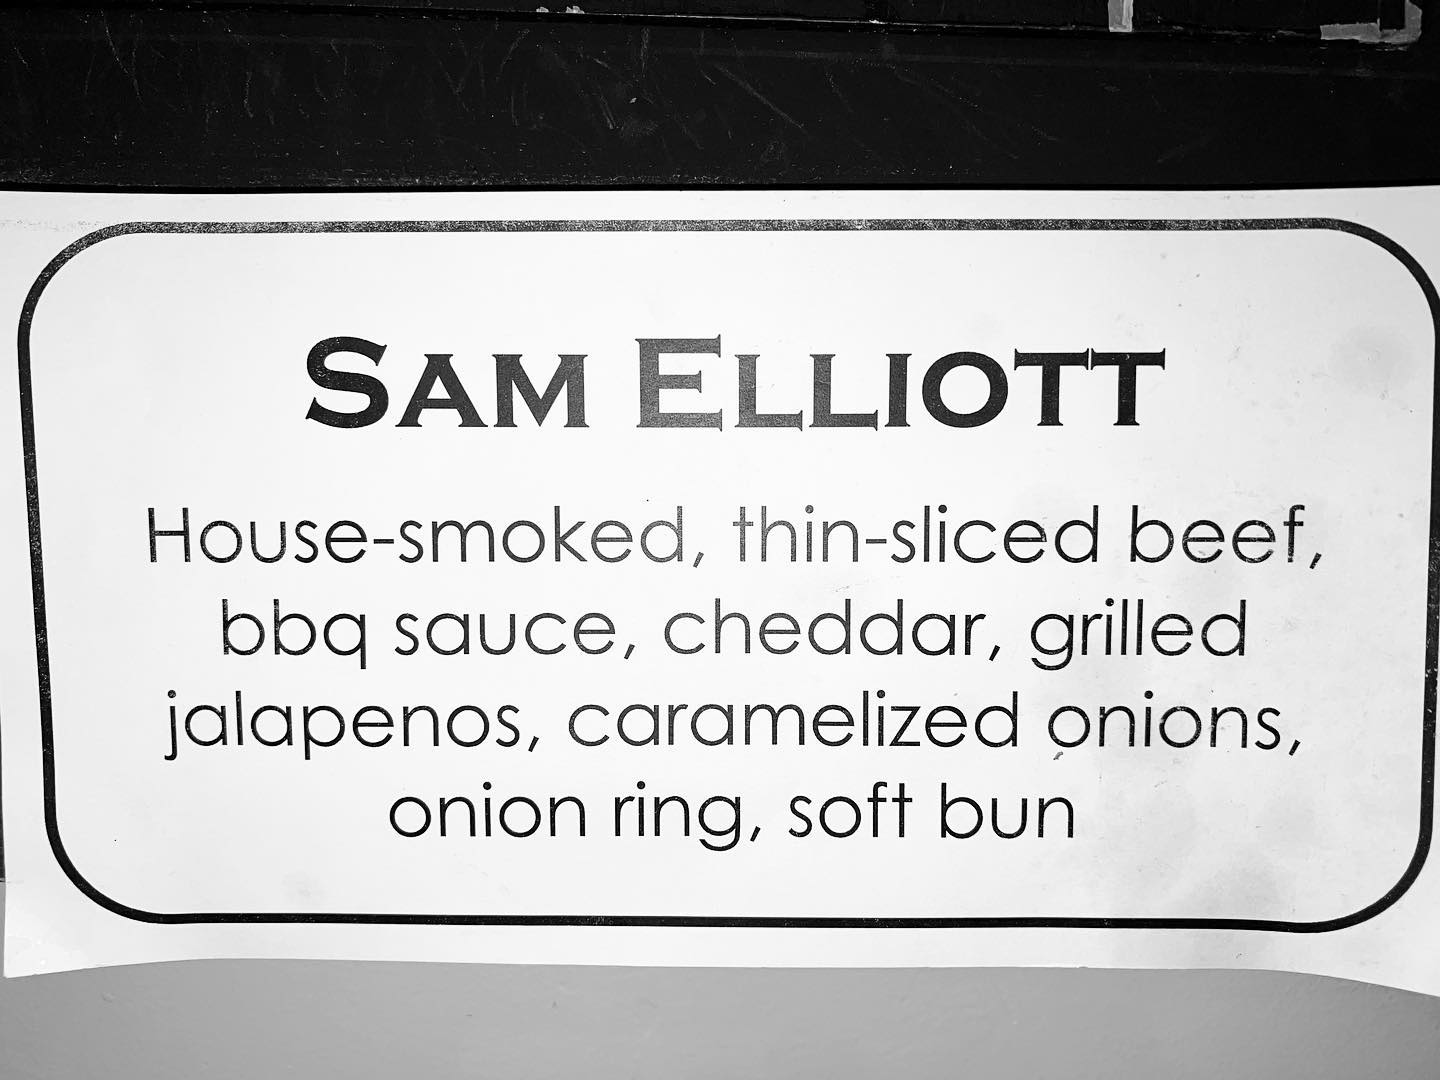 SAM ELLIOTT
House-smoked, thin-sliced beef,
bbq sauce, cheddar, grilled
jalapenos, caramelized onions,
onion ring, soft bun